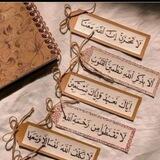 لَا تَحْزَنْ إِنَّ اللَّهَ مَعَنَا
أَلَا بِذِكْرِ اللَّهِ تَطْمَئِنُّ الْقُلُوبُ
إِيَّاكَ نَعْبُدُ وَإِيَّاكَ نَسْتَعِينُ
لَا تَقْنَطُوا مِن رَّحْمَةِ اللَّهِ
لَا يُكَلِّفُ اللَّهُ نَفْسًا إِلَّا وُسْعَهَا